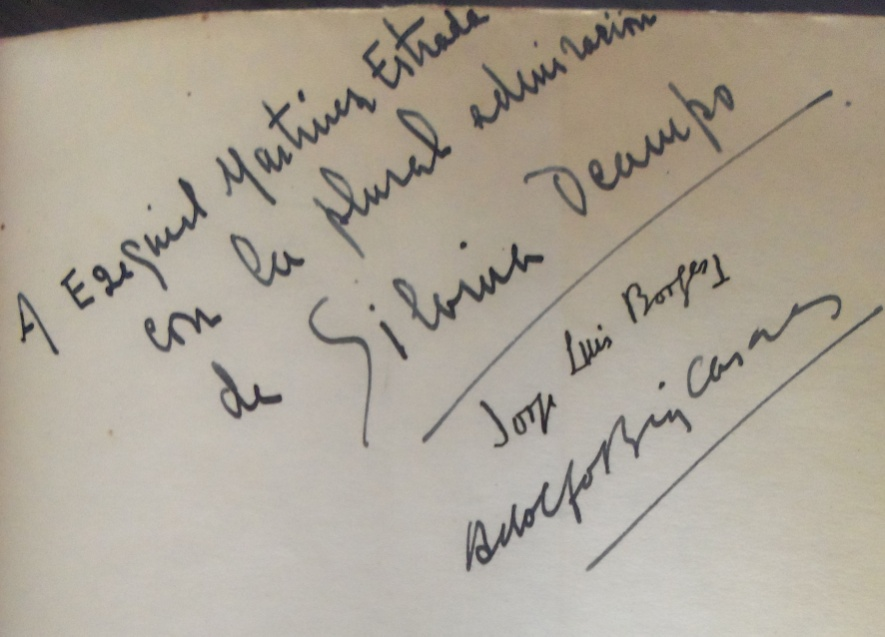 A Ezequiel Martínez Estrada
con la plural admiración
de Silvina Ocampo
Jorge Luis Borges
Adolfo Bioy Casares